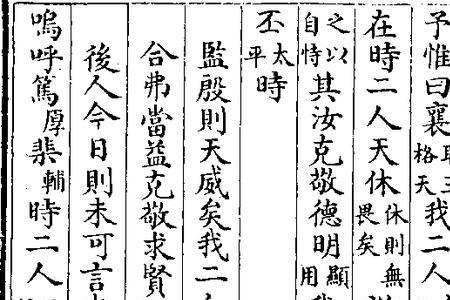 予惟曰襄格天我二人
在時二人天休休則無畏矣
之以自恃其汝克敬德明顯用
丕太平時
監殷則天威矣我二
合弗當益克敬求賢
後人今日則未可言
嗚呼篤厚棐輔時二人